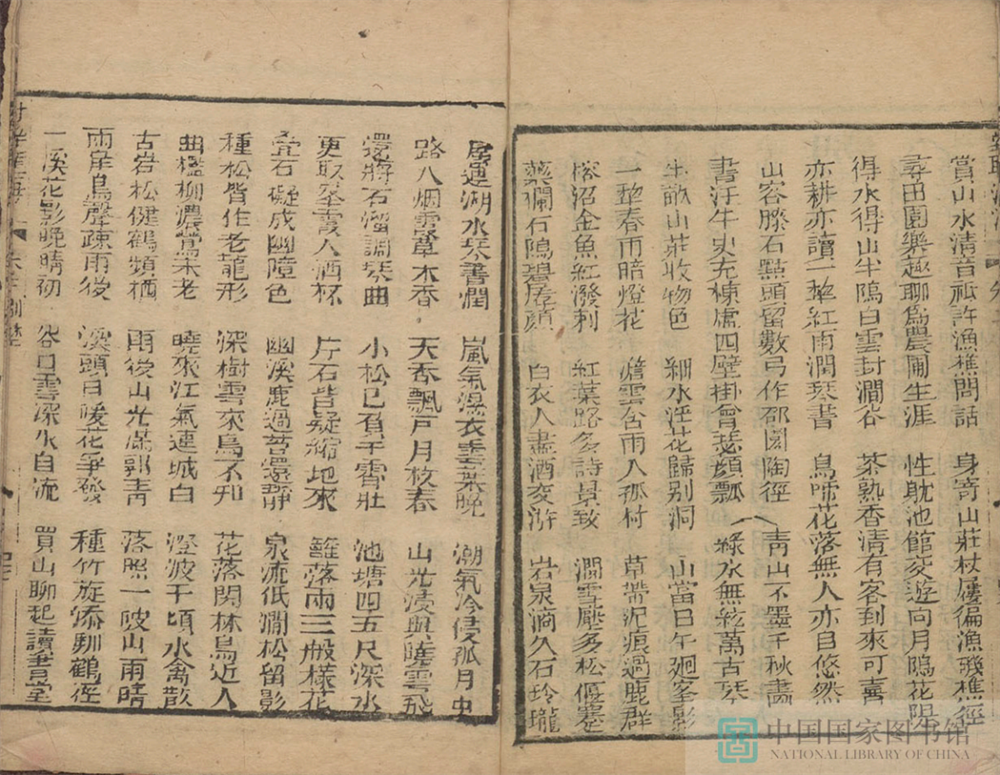 賞山水清音祗許漁樵問話　身寄山莊杖屨徧漁磯樵徑
尋田園樂趣聊爲農圃生涯　性耽池館交遊向月隝花隄
得水得山半隝白雲封澗谷　茶熟香清有客到來可喜
亦耕亦讀一犂紅雨潤琴書　鳥啼花落無人亦自悠然
山容滕石點頭留數弓作邵園陶徑　青山不墨千秋畵
書汗牛史充棟盧四壁掛曾瑟顔瓢　綠水無絃萬古琴
生畝山莊收物色　細水浮花歸别洞　山當日午廻峯影
一犂春雨暗燈花　澹雲含雨入孤村　草帶泥痕過鹿群
沼金魚紅潑剌　紅葉路多詩景致　澗雪壓多松偃蹇
藥欄石隝碧孱顔　白衣人盡酒交游　岩泉滴久石玲瓏
居連湖水琴書潤　嵐氣濕衣雲葉晚　湖氣冷侵孤月中
路入烟霧草木香　天香飄戸月枚春　山光漬與曉雲飛
還將石溜調琴曲　小松已負干霄壯　池塘四五尺深水
更取峯霞入酒杯　片石皆疑縮地來　籬落兩三般樣花
石凝成幽隨色　幽溪鹿過苔還静　泉流低澗松留影
種松皆作老龍形　深樹雲來鳥不知　花落閑林鳥近人
曲檻柳濃鶯未老　曉來江氣連城白　澄波千頃水禽散
古岩松健鶴頻栖　雨後山光滿郭青　落照一陂山雨晴
雨岸鳥聲疎雨後　溪頭日暖花爭發　種竹旋添馴鶴徑
一溪花影晚晴初　谷口雲深水自流　買山聊起讀書堂